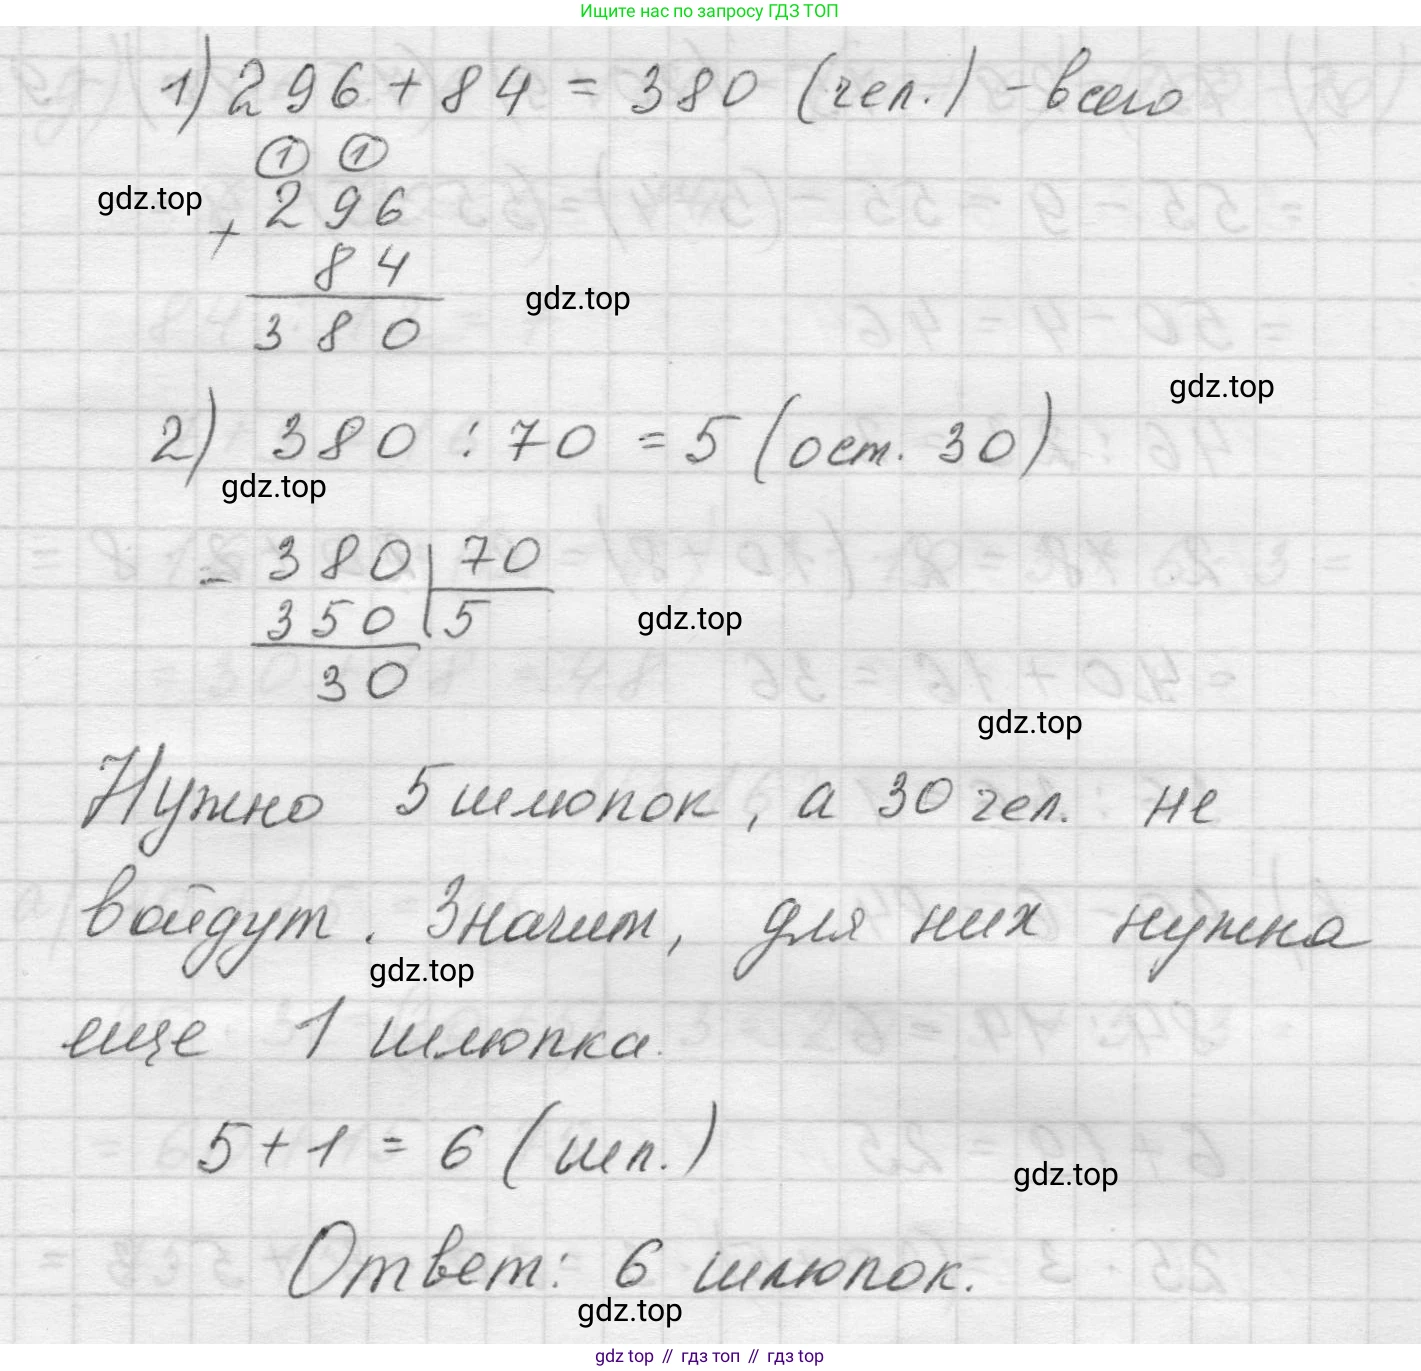 Ищите нас по запросу ГДЗ ТОП
1) 296 + 84 = 380 (чел.) - всего
1 1
gdz.top
+ 296
84
gdz.top
380
gdz.top
2) 380 : 70 = 5 (ост. 30)
gdz.top
- 380 70
350 5
gdz.top
30
gdz.top
Нужно 5 шлюпок, а 30 чел. не
войдут. Значит, для них нужна
gdz.top
еще 1 шлюпка.
5 + 1 = 6 (шл.)
gdz.top
Ответ: 6 шлюпок.
gdz.top
gdz top // гдз топ // gdz top